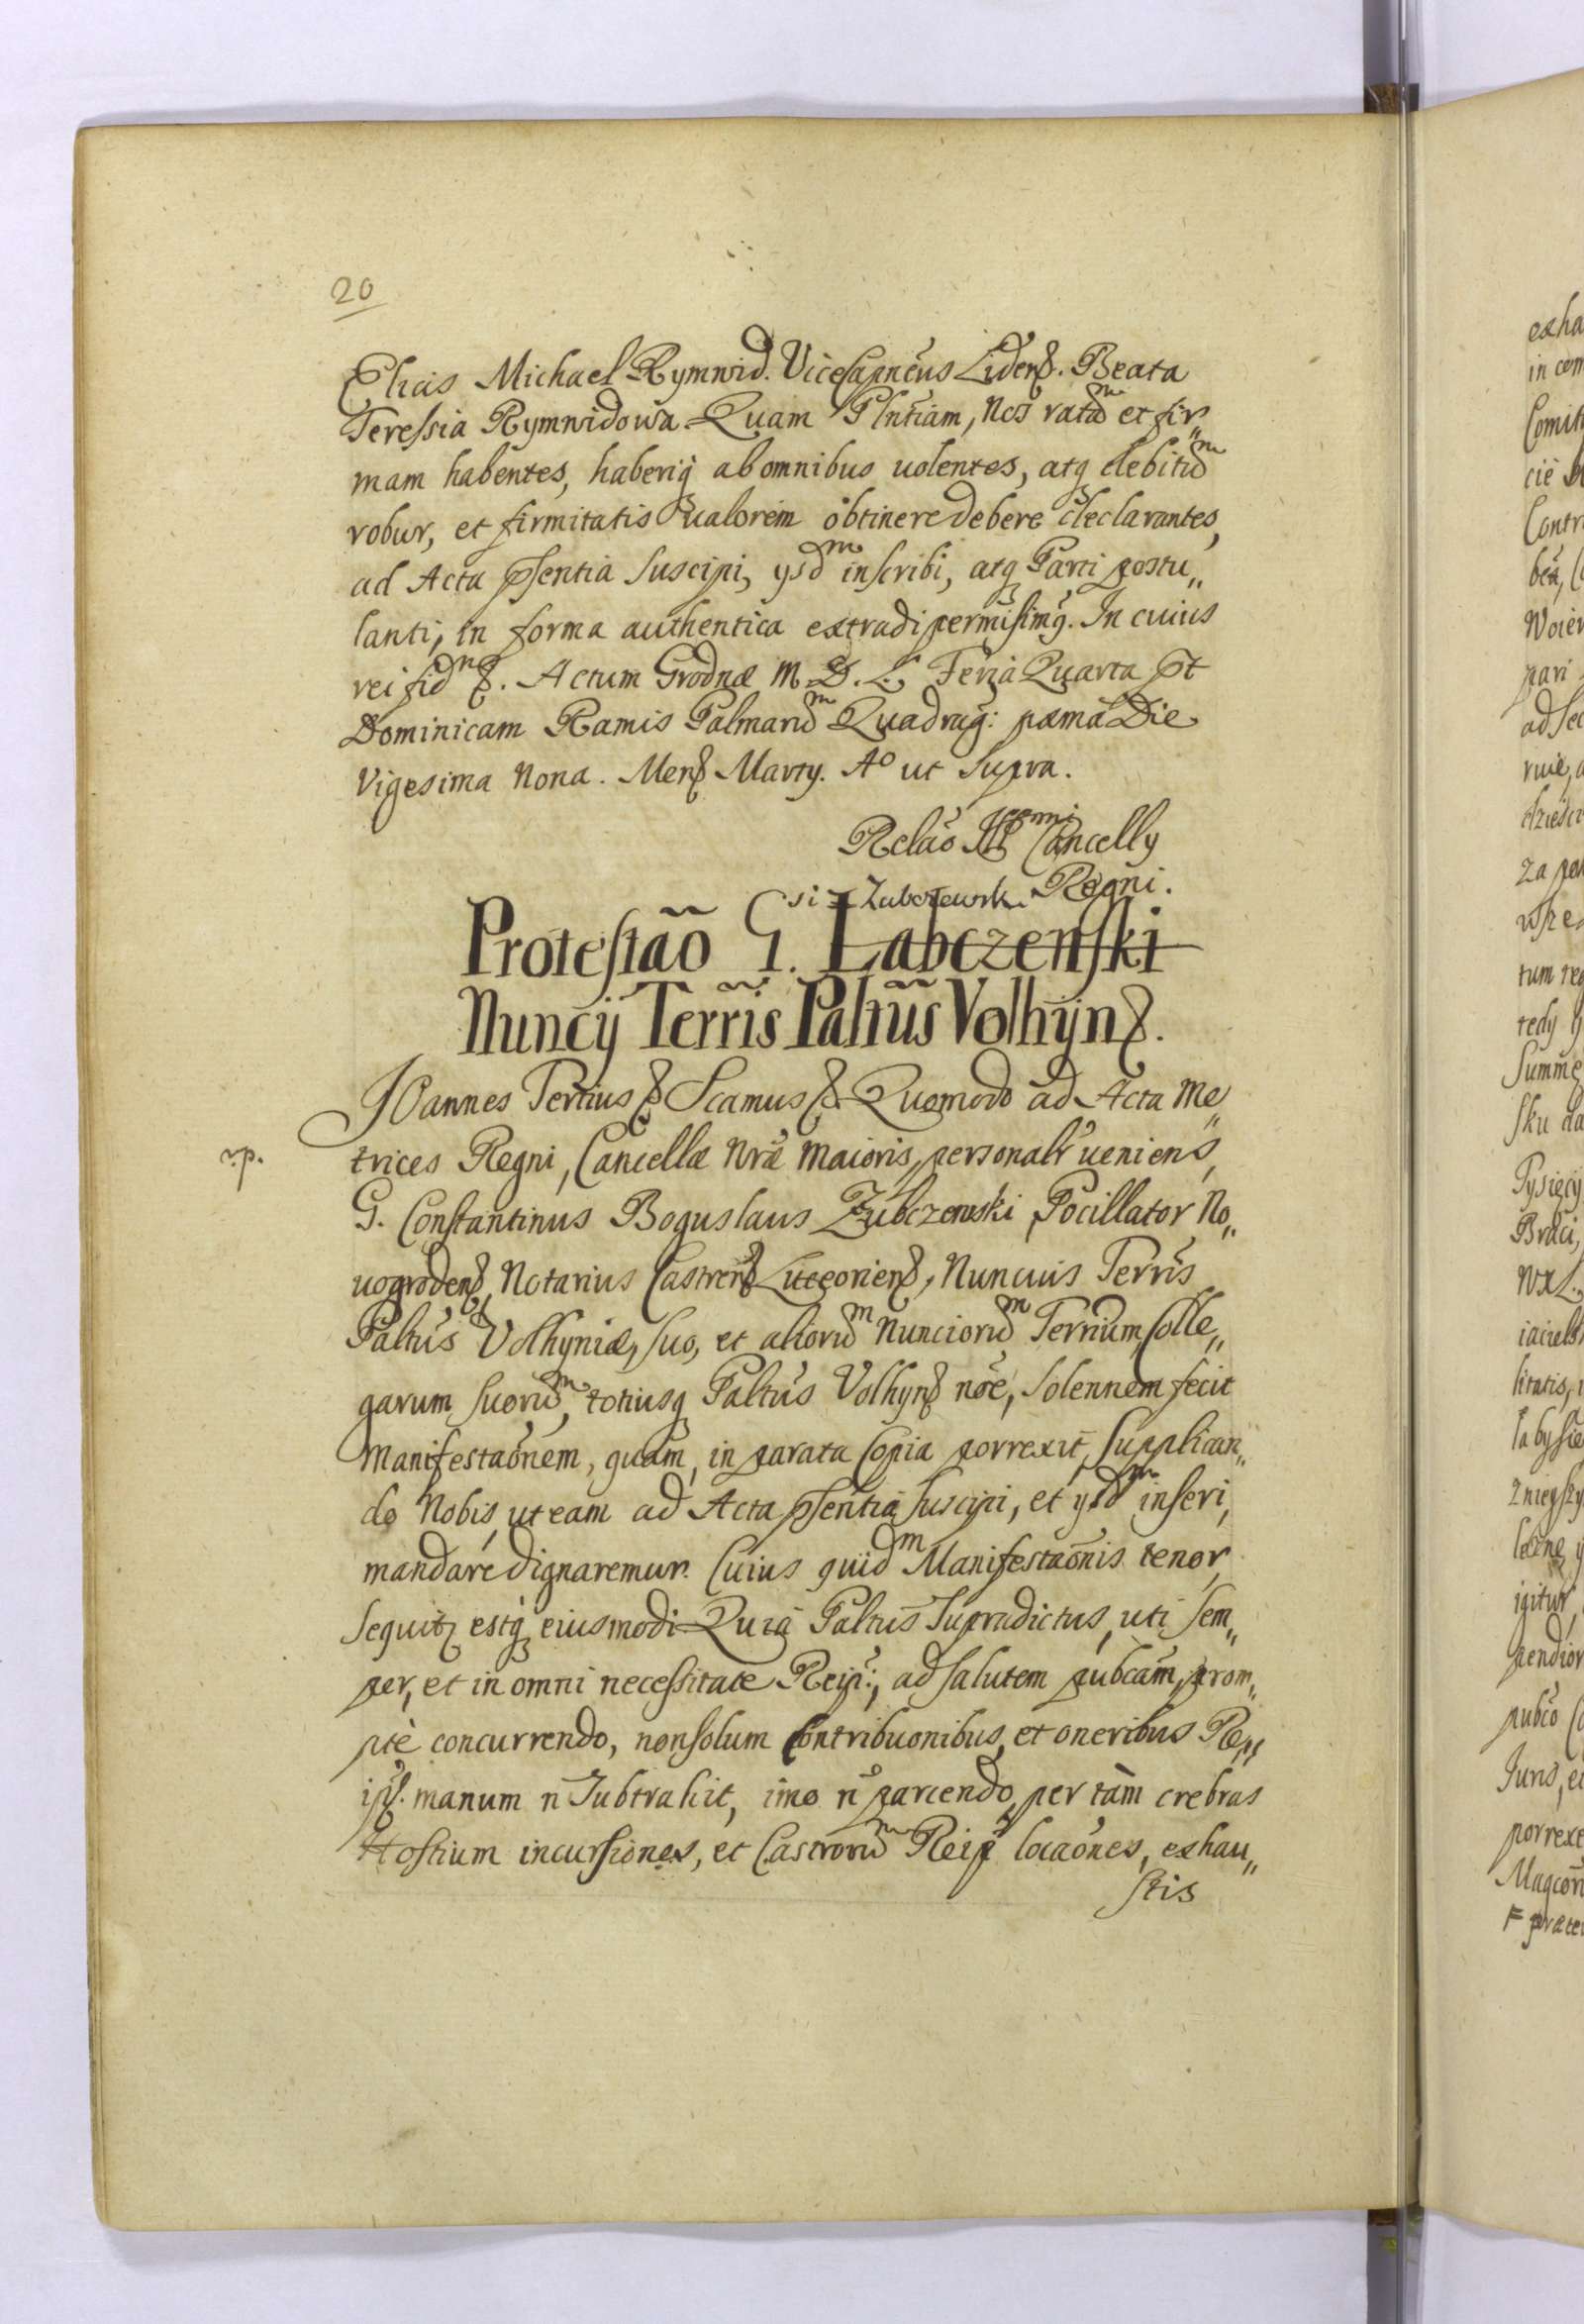 20
Elias Michael Rymwid. Vicecapneus Lidens. Beata
Teressia Rymwidowa. Quam Plntiam, Nos ratam et fir„
mam habentes, haberiq ab omnibus uolentes, atq debitum
robur, et firmitatis ualorem obtinere debere declarantes,
ad Acta psentia suscipi, ysdm inscribi, atq Parti postu„
lanti, in forma authentica extradi permisimq. In cuius
rei fidm &. Actum Grodnæ M. D. L. Feria Quarta pt
Dominicam Ramis Palmarum Quadrag: pxma Die
Vigesima Nona. Mens Marty. Ao ut supra.
Relão Illr̃mi Cancelly
Regni.
si Zubczewski
Protestaõ G. Labczenski
Nuncij Terr̃is Palt̃us Volhijn&.
Joannes Tertius & Scamus & Quomodo ad Acta Me„
r.p.
trices Regni, Cancellæ Nræ Maioris, personalr ueniens,
G. Constantinus Boguslaus Zubczewski, Pocillator No„
uogrodens, Notarius Castrens Luceoriens, Nuncius Terris
Paltus Volhyniæ, suo, et aliorum Nunciorum Terrium, Colle„
garum suorum, totiusq Paltus Volhyn& nõe, solennem fecit
Manifestaõnem, quam, in parata Copia porrexit, supplican„
do Nobis, ut eam ad Acta psentia suscipi, et ysdm inseri,
mandare dignaremur. Cuius quidm Manifestaõnis tenor
sequitr estq eiusmodi Quia Paltus Supradictus, uti sem„
per, et in omni necessitate Reip:, ad salutem pubcam, prom„
ptè concurrendo, non solum Contribuonibus, et oneribus Re„
ip. manum ñ subtrahit, imo ñ parcendo, per tam crebras
Hostium incursiones, et Castrorum Reip locaõnes, exhau„
stis